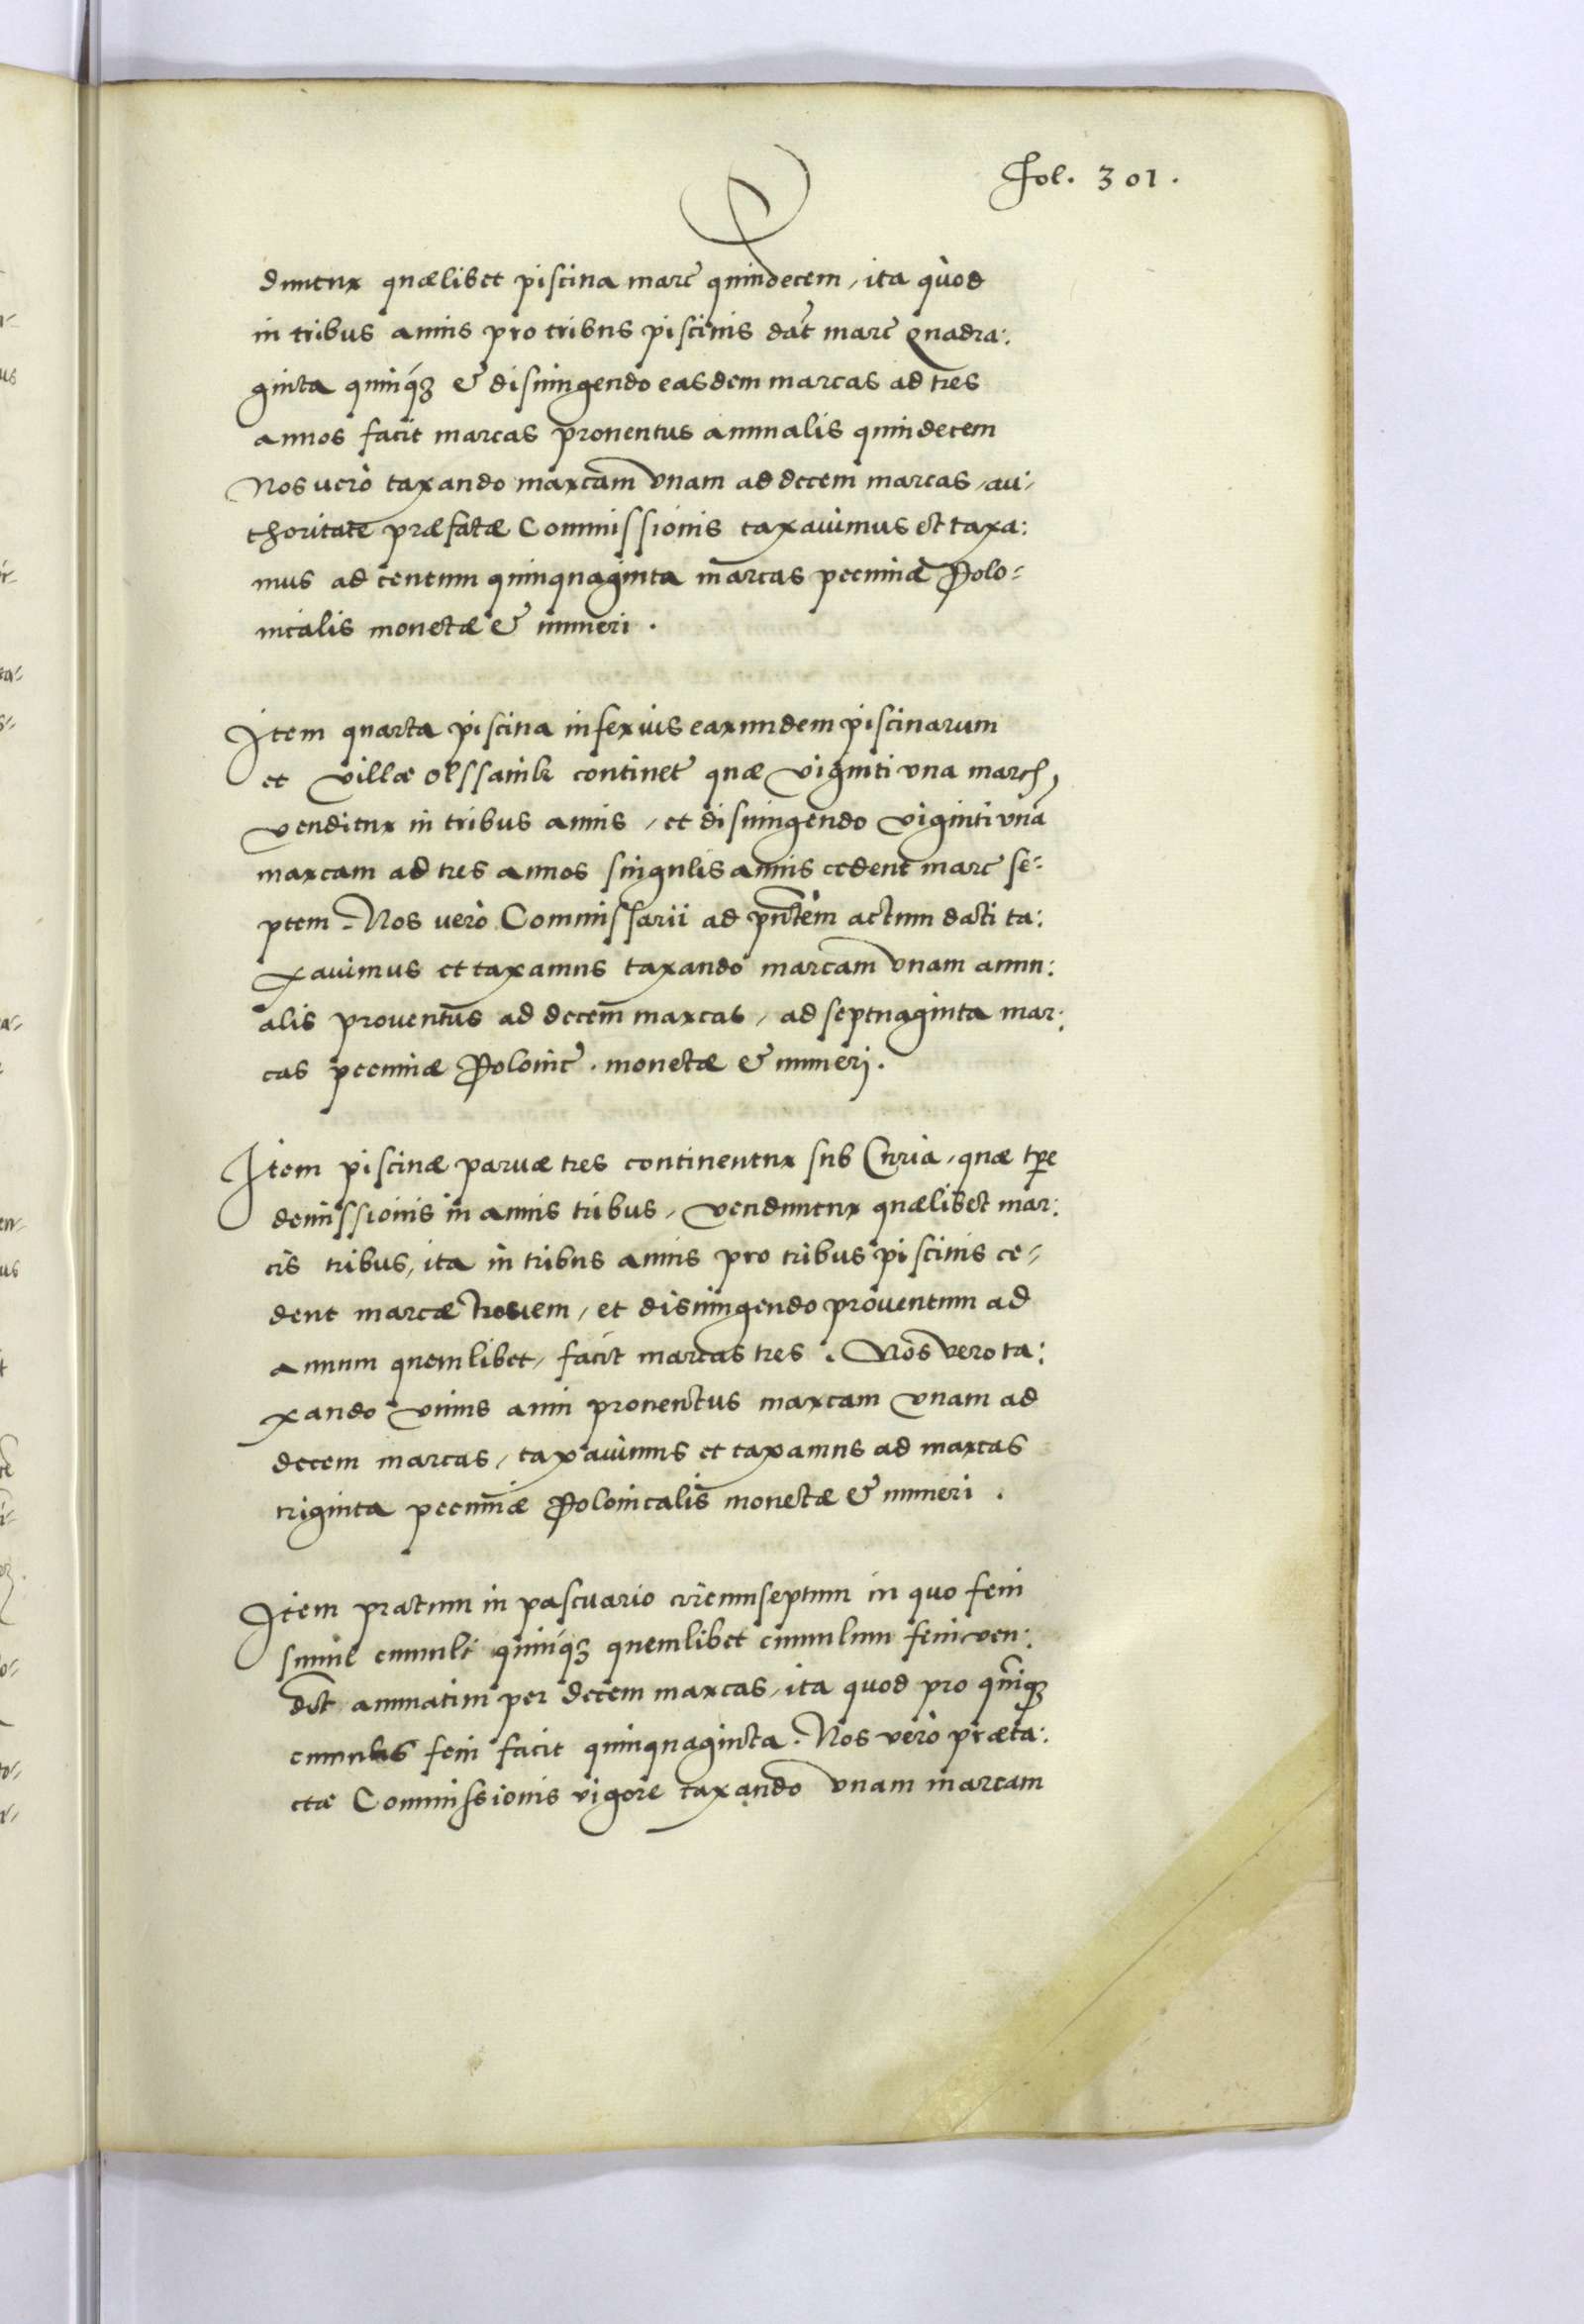 Fol. 301.
duntur quælibet piscina marc̃ quindecem, ita quòd
in tribus annis pro tribus piscinis dãt marc̃ Quadra:
ginta quinq́ꝫ & disiungendo easdem marcas ad tres
annos facit marcas prouentus annualis quindecem
Nos uerò taxando marcam vnam ad decem marcas, au:
thoritate præfatæ Commissionis taxauimus et taxa:
mus ad centum quinquaginta marcas pecuniæ Polo:
nicalis monetæ & numeri.
Item quarta piscina inferius earundem piscinarum
et villæ Olssanik continet̃ quæ viginti vna march,
venditur in tribus annis, et disiungendo viginti vnã
marcam ad tres annos singulis annis cedent marc̃ se:
ptem. Nos uerò Commissarii ad pñtem actum dati ta:
xauimus et taxamus taxando marcam vnam annu:
alis prouentus ad decem marcas, ad septuaginta mar:
cas pecuniæ Polonic̃. monetæ & numerj.
Item piscinæ paruæ tres continentur sub Curia, quæ tꝑe
demissionis in annis tribus, venduntur quælibet mar:
cis tribus, ita in tribus annis pro tribus piscinis ce:
dent marcæ novem, et disiungendo prouentum ad
annum quemlibet, facit marcas tres. Nos vero ta:
xando vnius anni prouentus marcam vnam ad
decem marcas, taxauimus et taxamus ad marcas
triginta pecuniæ Polonicalis monetæ & numeri.
Item pratum in pascuario circumseptum in quo feni
sunt cumuli quinq́ꝫ quemlibet cumulum feni ven:
dit annuatim per decem marcas, ita quod pro quinqꝫ
cumulis feni facit quinquaginta. Nos verò præta:
ctæ Commissionis vigore taxando vnam marcam